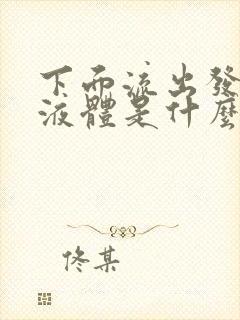 下面流出發
液體是什麼
佟某